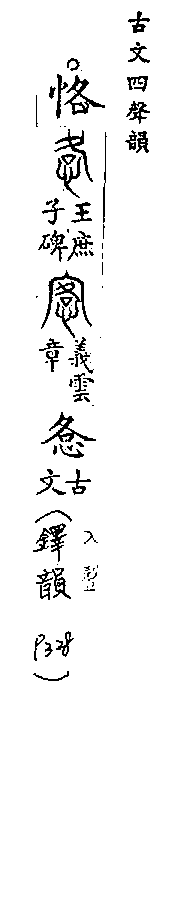 古文四聲韻
恪
王庶
子碑
義雲
章
古
文
(鐸韻
入聲
P328)